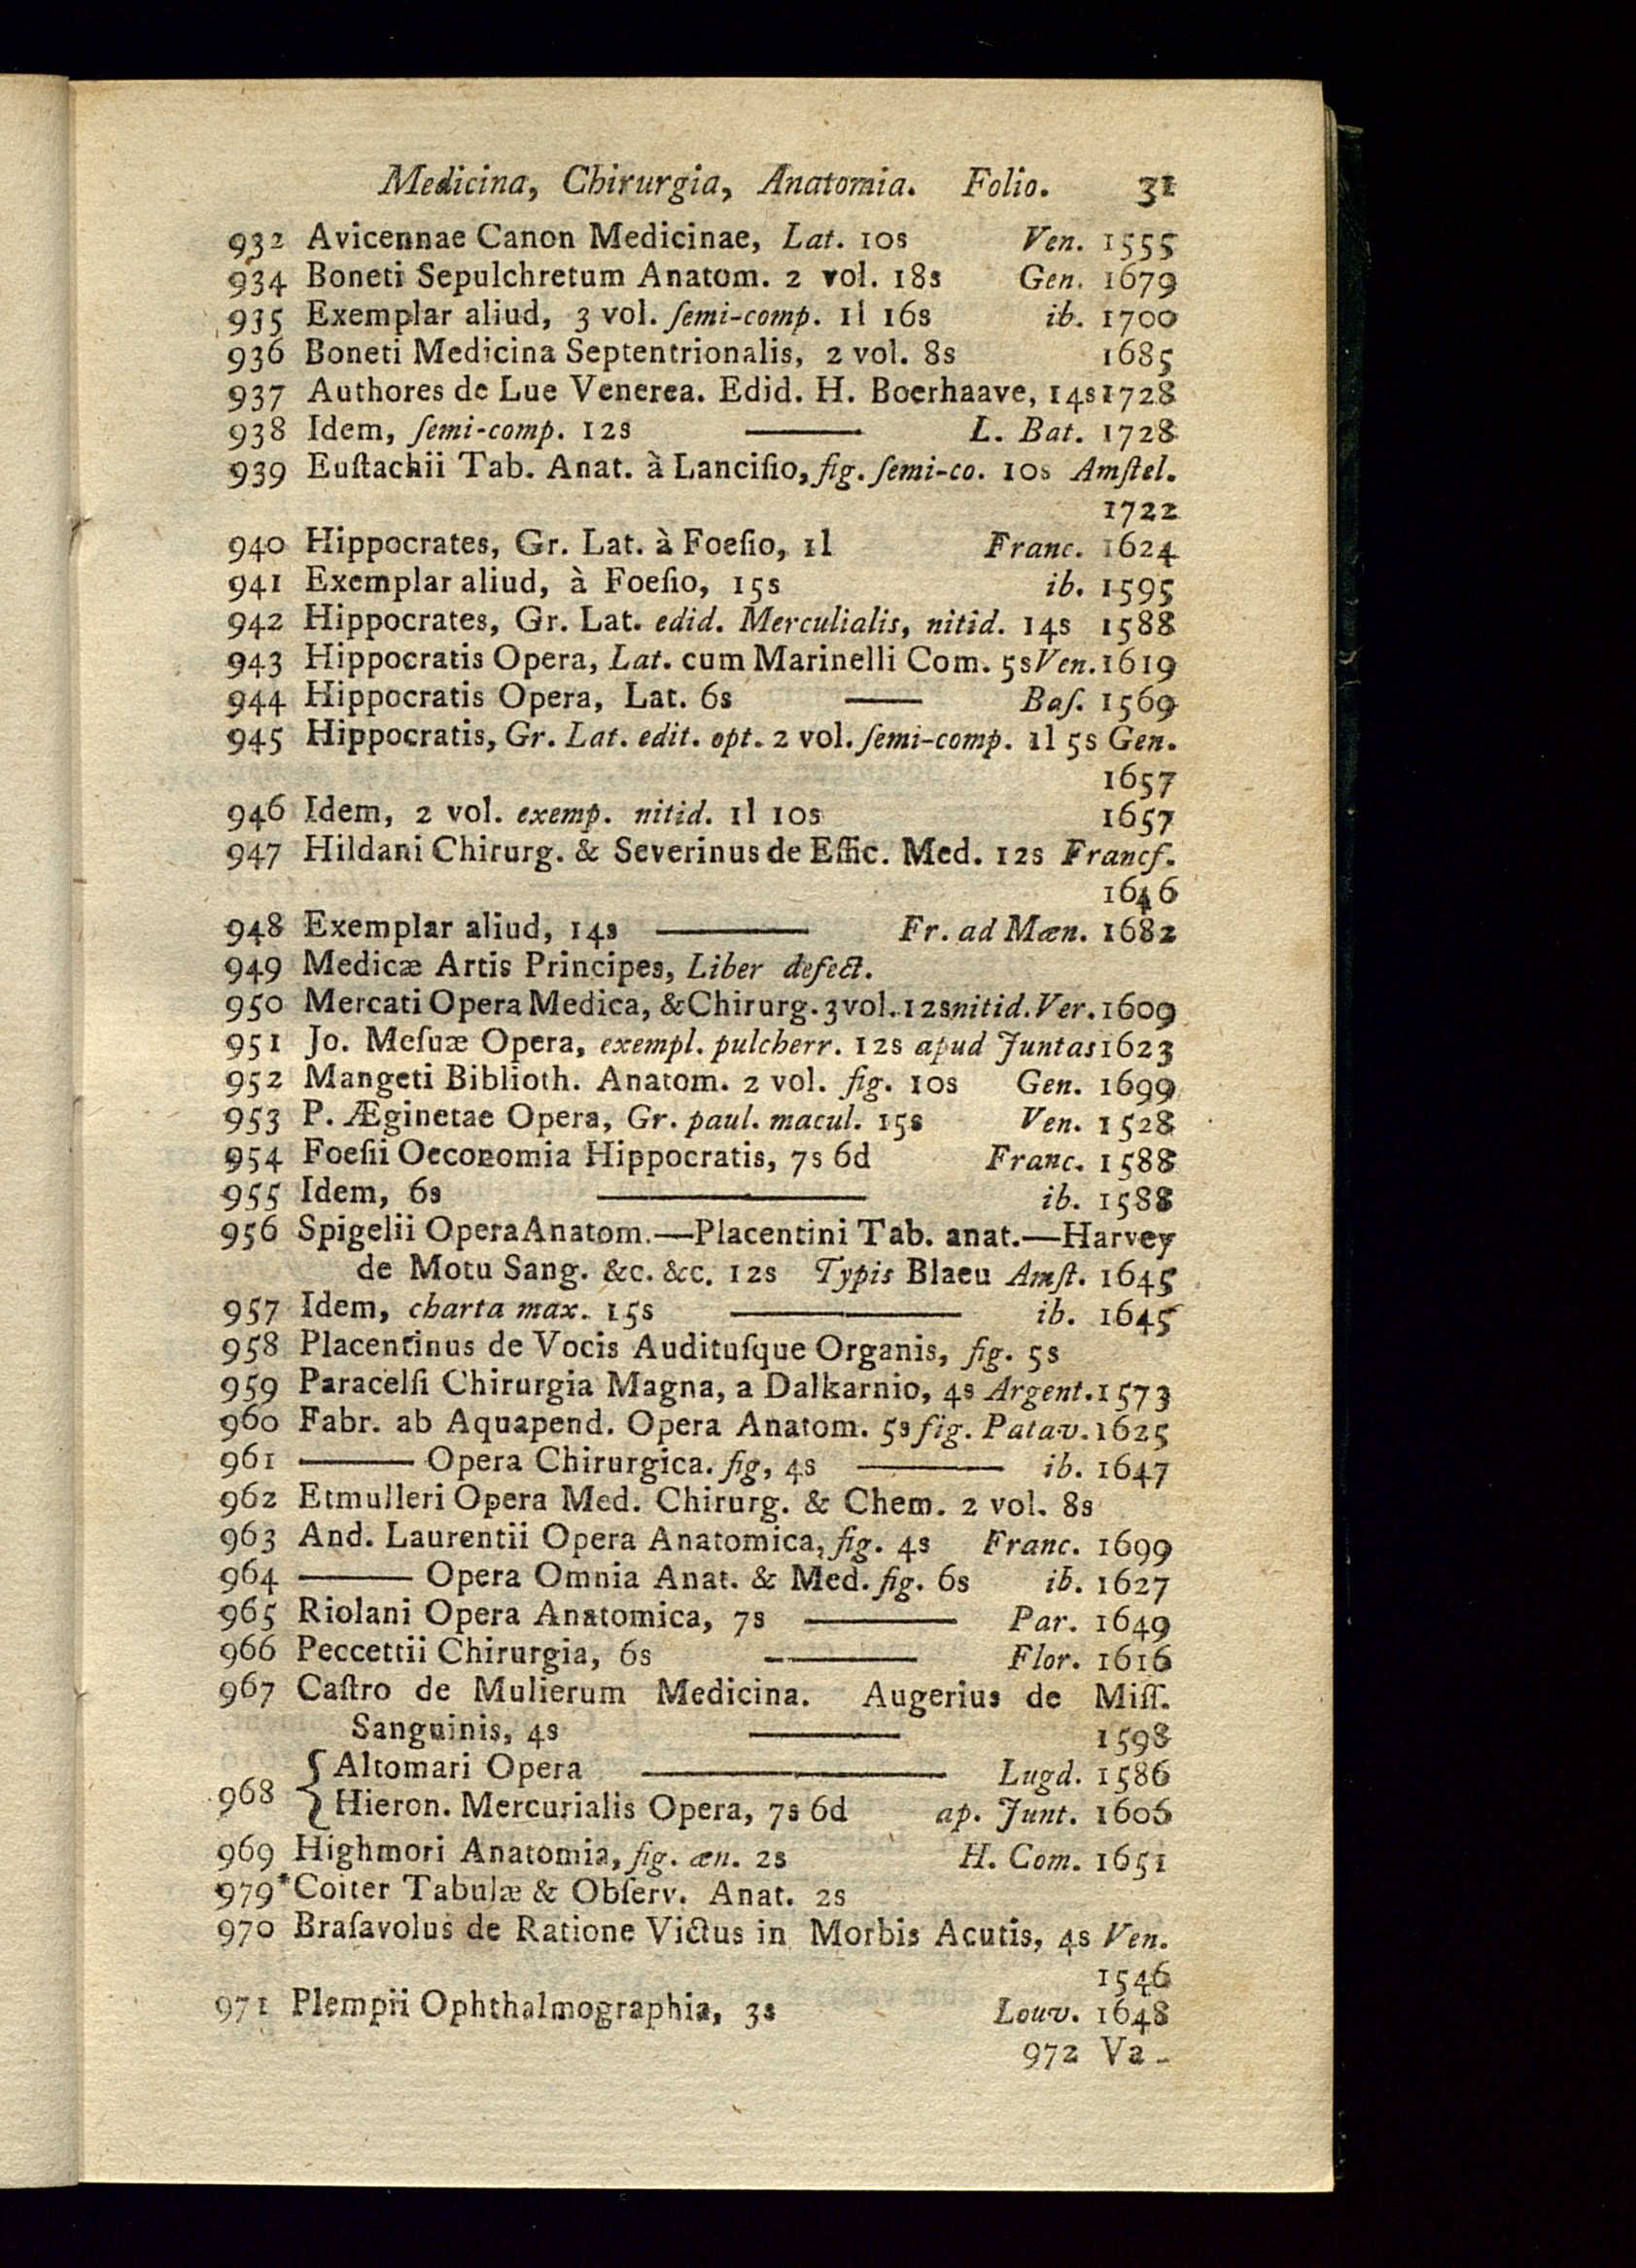 Medicina, Chirurgia, Anatomia. Folio. 31
932 Avicennae Canon Medicinae, Lat. 10s Ven. 1555
934 Boneti Sepulchretum Anatom. 2 vol. 18s Gen. 1679
935 Exemplar aliud, 3 vol. ſemi-comp. 1l 16s ib. 1700
936 Boneti Medicina Septentrionalis, 2 vol. 8s 1685
937 Authores de Lue Venerea. Edid. H. Boerhaave, 14s 1728
938 Idem, ſemi-comp. 12s —— L. Bat. 1728
939 Euſtachii Tab. Anat. à Lanciſio, fig. ſemi-co. 10s Amſtel.
1722
940 Hippocrates, Gr. Lat. à Foeſio, 1l Franc. 1624
941 Exemplar aliud, à Foeſio, 15s ib. 1595
942 Hippocrates, Gr. Lat. edid. Merculialis, nitid. 14s 1588
943 Hippocratis Opera, Lat. cum Marinelli Com. 5s Ven. 1619
944 Hippocratis Opera, Lat. 6s —— Baſ. 1569
945 Hippocratis, Gr. Lat. edit. opt. 2 vol. ſemi-comp. 1l 5s Gen.
1657
946 Idem, 2 vol. exemp. nitid. 1l 10s 1657
947 Hildani Chirurg. & Severinus de Effic. Med. 12s Francf.
1646
948 Exemplar aliud, 14s —— Fr. ad Mæn. 1682
949 Medicæ Artis Principes, Liber defect.
950 Mercati Opera Medica, & Chirurg. 3 vol. 12s nitid. Ver. 1609
951 Jo. Meſuæ Opera, exempl. pulcherr. 12s apud Juntas 1623
952 Mangeti Biblioth. Anatom. 2 vol. fig. 10s Gen. 1699
953 P. Æginetae Opera, Gr. paul. macul. 15s Ven. 1528
954 Foeſii Oeconomia Hippocratis, 7s 6d Franc. 1588
955 Idem, 6s —— ib. 1588
956 Spigelii Opera Anatom.—Placentini Tab. anat.—Harvey
de Motu Sang. &c. &c. 12s Typis Blaeu Amſt. 1645
957 Idem, charta max. 15s —— ib. 1645
958 Placentinus de Vocis Audituſque Organis, fig. 5s
959 Paracelſi Chirurgia Magna, a Dalkarnio, 4s Argent. 1573
960 Fabr. ab Aquapend. Opera Anatom. 5s fig. Patav. 1625
961 —— Opera Chirurgica. fig, 4s —— ib. 1647
962 Etmulleri Opera Med. Chirurg. & Chem. 2 vol. 8s
963 And. Laurentii Opera Anatomica, fig. 4s Franc. 1699
964 —— Opera Omnia Anat. & Med. fig. 6s ib. 1627
965 Riolani Opera Anatomica, 7s —— Par. 1649
966 Peccettii Chirurgia, 6s —— Flor. 1616
967 Caſtro de Mulierum Medicina. Augerius de Miſſ.
Sanguinis, 4s —— 1598
968 { Altomari Opera —— Lugd. 1586
Hieron. Mercurialis Opera, 7s 6d ap. Junt. 1606
969 Highmori Anatomia, fig. æn. 2s H. Com. 1651
979* Coiter Tabulæ & Obſerv. Anat. 2s
970 Braſavolus de Ratione Victus in Morbis Acutis, 4s Ven.
1546
971 Plempii Ophthalmographia, 3s Louv. 1648
972 Va-